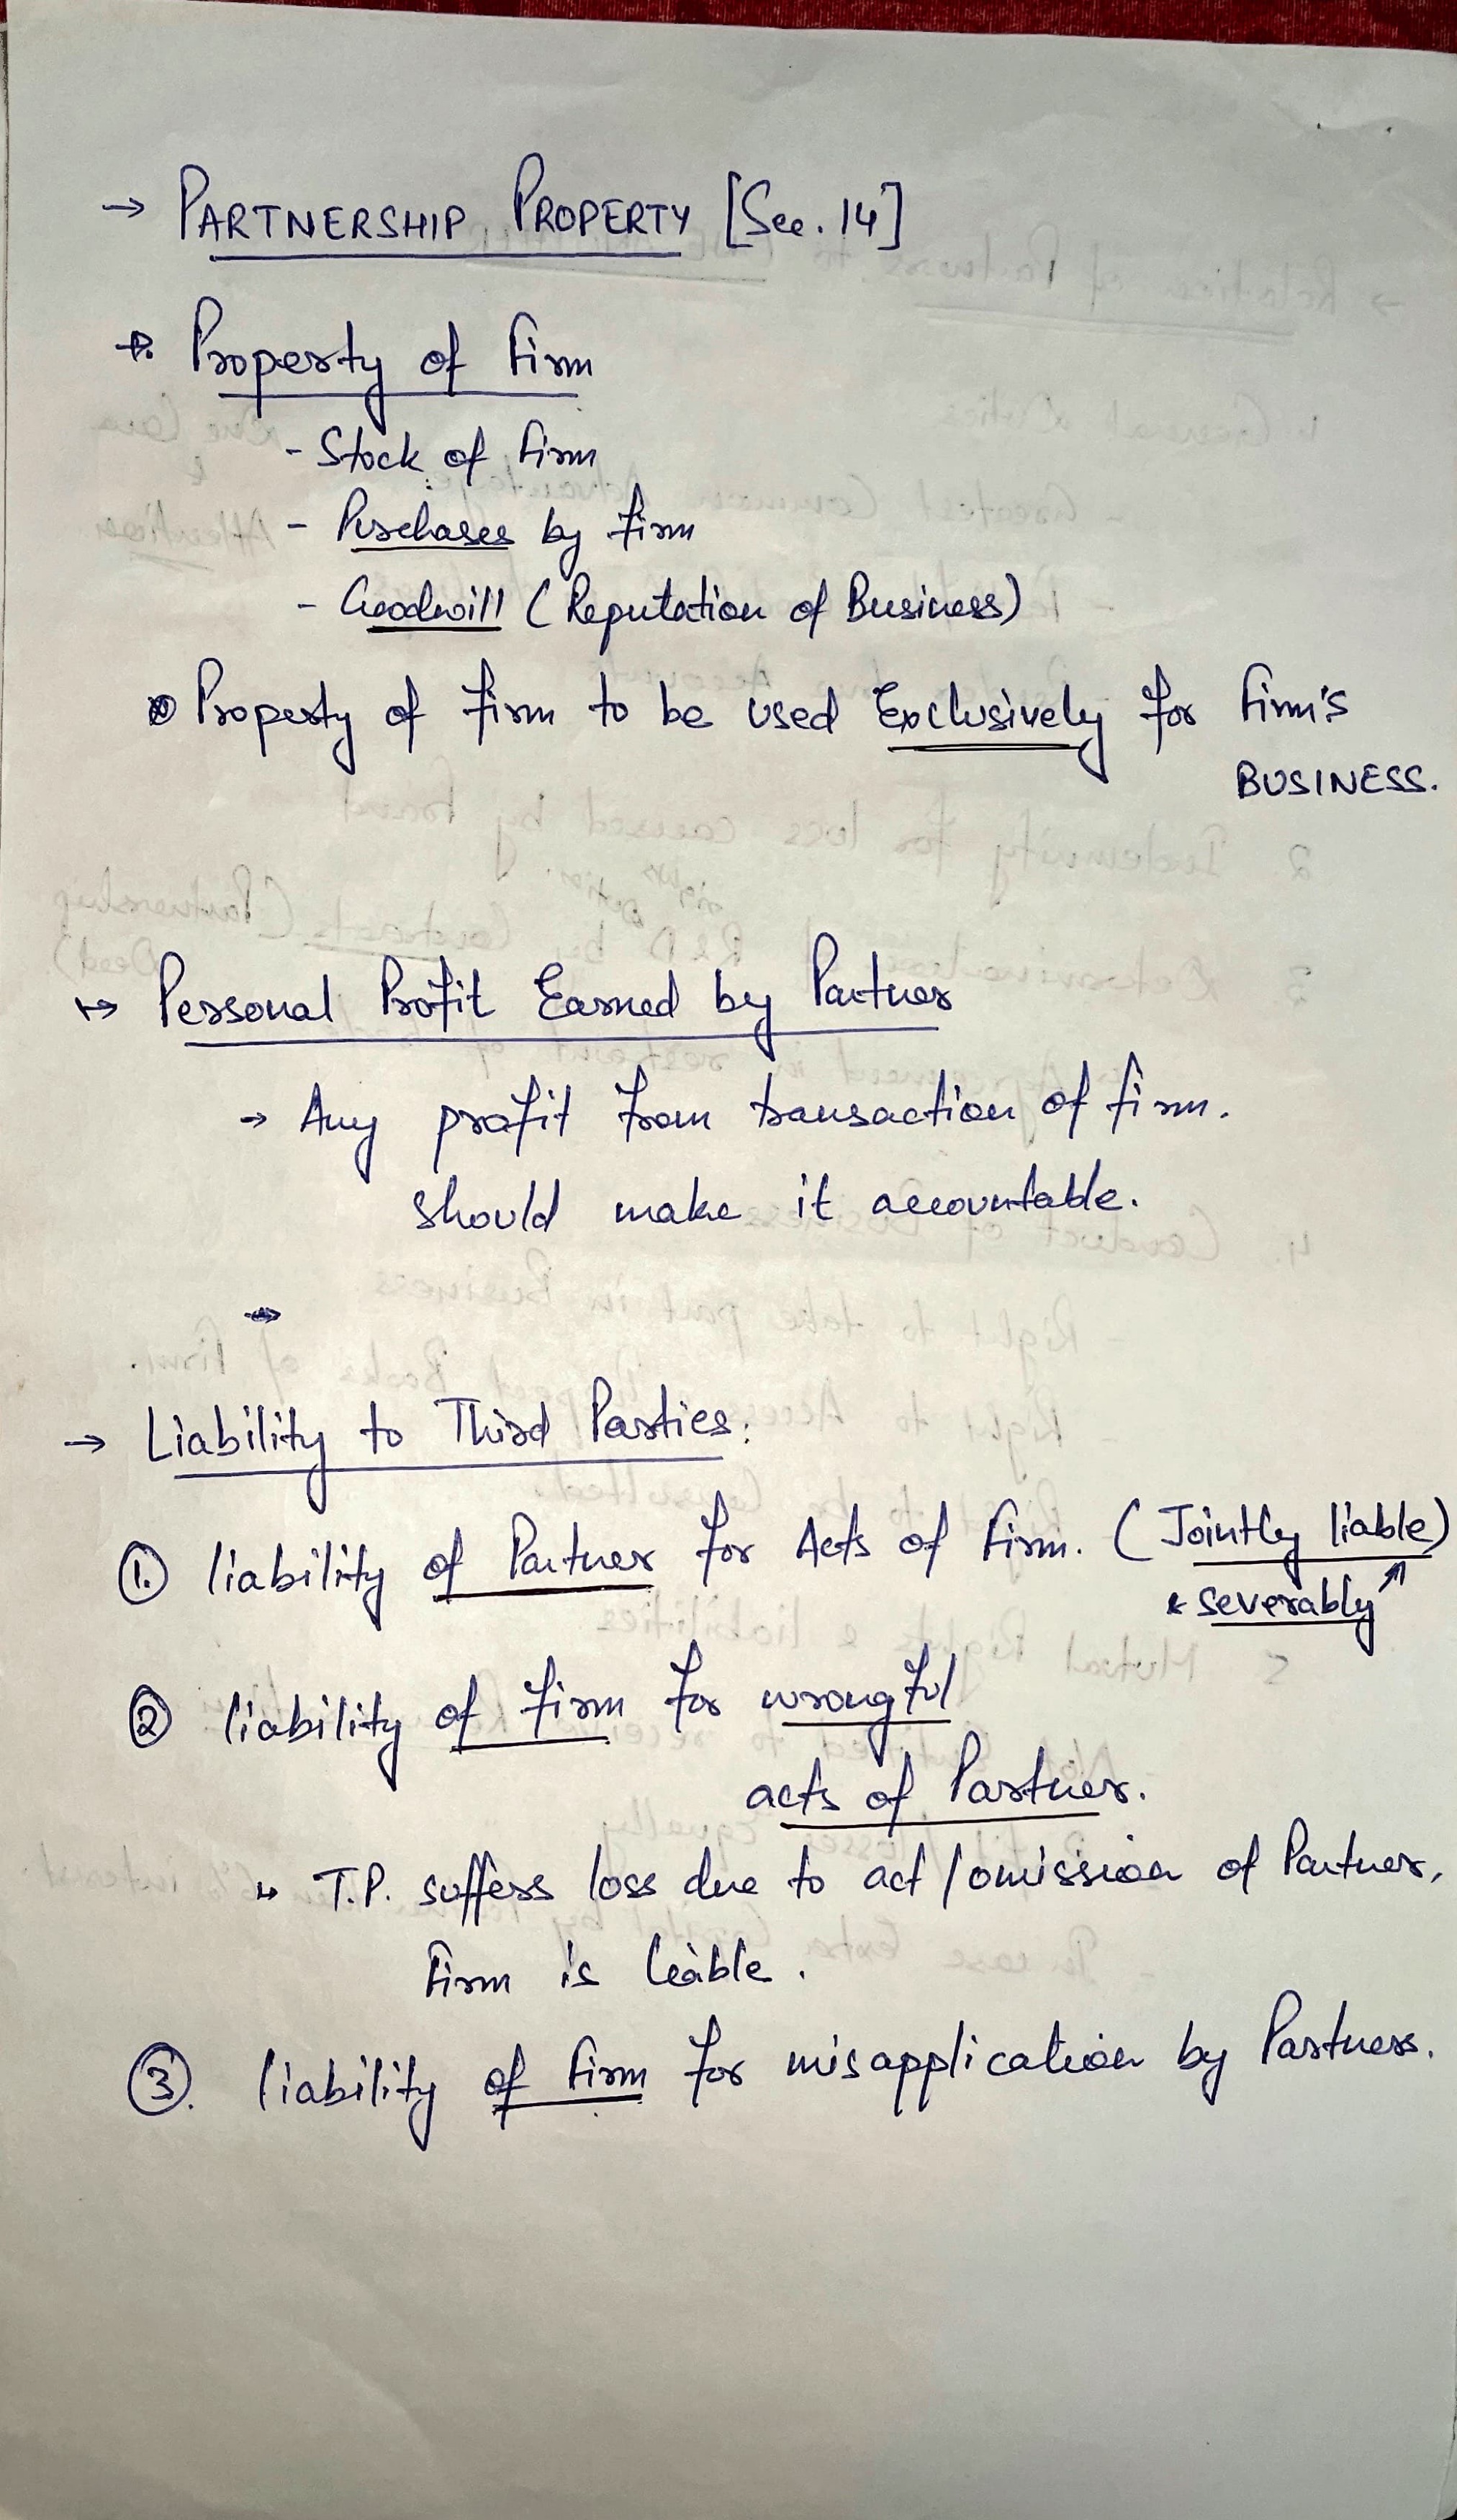 → PARTNERSHIP PROPERTY [Sec. 14]
→ Property of Firm
- Stock of Firm
- Purchases by Firm
- Goodwill (Reputation of Business)
Property of Firm to be used Exclusively for Firm's
BUSINESS.
↦ Personal Profit Earned by Partner
→ Any profit from transaction of firm.
should make it accountable.
→ Liability to Third Parties:
① liability of Partner for Acts of Firm. (Jointly liable)
& severably
② liability of Firm for wrongful
acts of Partner.
↳ T.P. suffers loss due to act/omission of Partner,
Firm is liable.
③. liability of Firm for misapplication by Partners.